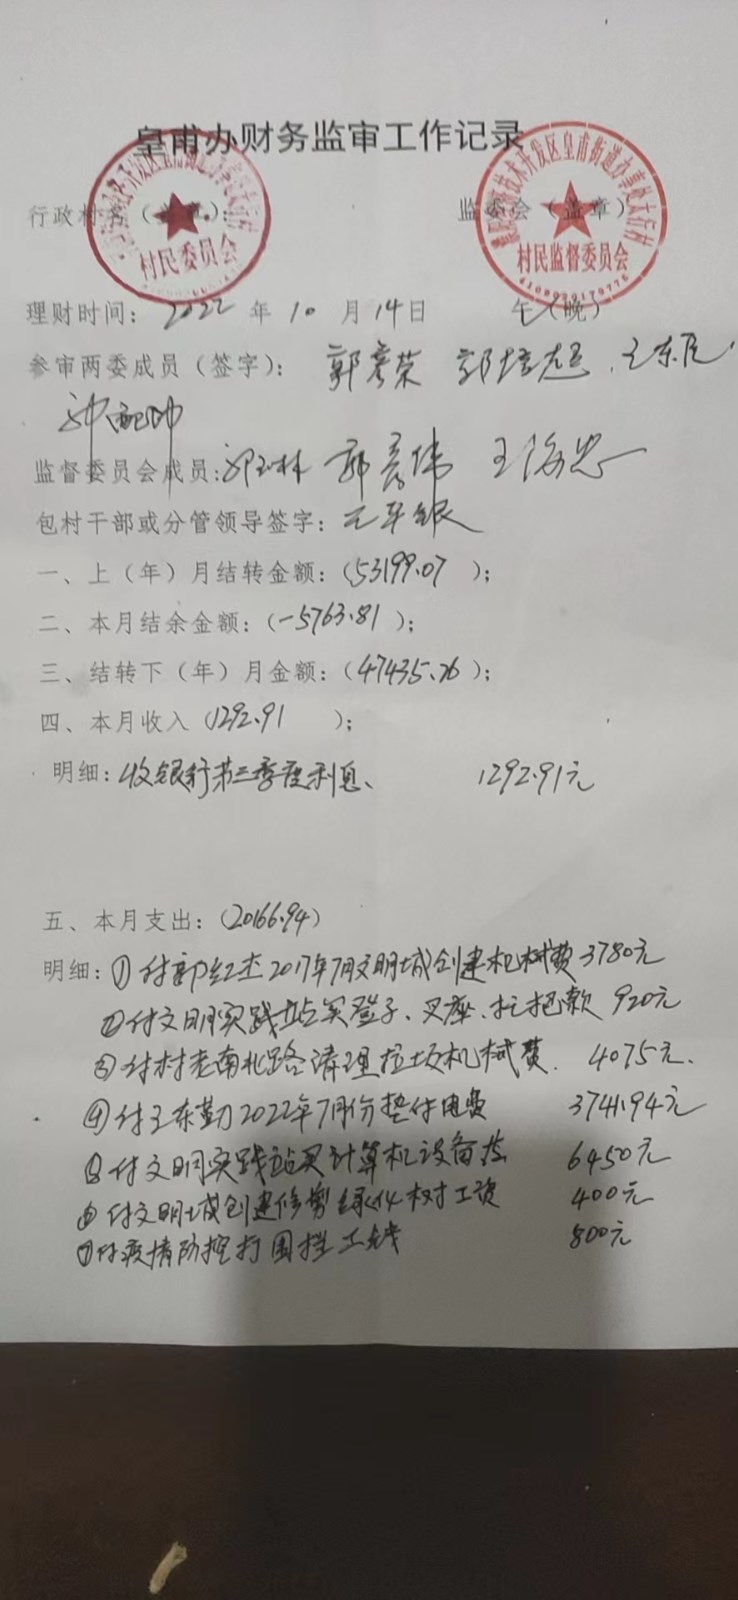 皇甫办财务监审工作记录
行政村名（盖章）：
监委会（盖章）
村民委员会
技术开发区皇甫街道办事处
村民监督委员会
理财时间：2022 年 10 月 14日 午（晚）
参审两委成员（签字）：郭彦荣 郭培超
监督委员会成员：郭 伟 王海忠
包村干部或分管领导签字：
一、上（年）月结转金额：（53199.07 ）；
二、本月结余金额：（-5763.81 ）；
三、结转下（年）月金额：（47435.26）；
四、本月收入（1292.91 ）；
明细：收银行第三季度利息、 1292.91元
五、本月支出：（20166.94）
明细：①付郭红杰2017年7月文明城创建机械费3780元
②付文明实践站买登子、叉座、拖把款 920元
③付村老南北路清理垃圾机械费. 4075元.
④付王东勤2022年7月份垫付电费 3741.94元
⑤付文明实践站买计算机设备 6450元
⑥付文明城创建修剪绿化树工资 400元
⑦付疫情防控打围挡工钱 800元